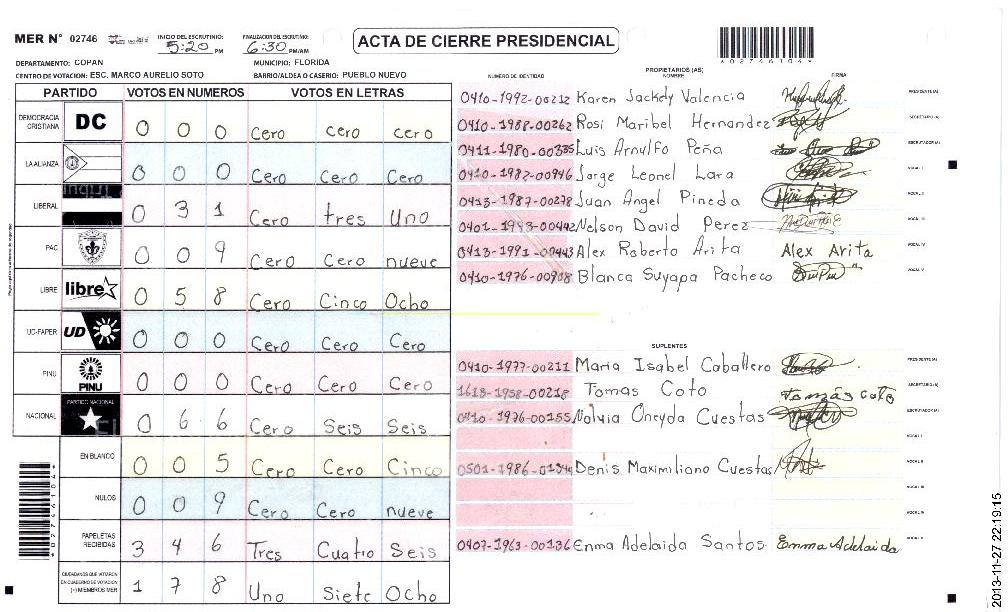 MER N° 02746
INICIO DEL ESCRUTINIO: 5:20 PM
FINALIZACION DEL ESCRUTINIO: 6:30 PM/AM
ACTA DE CIERRE PRESIDENCIAL
*02746104*
DEPARTAMENTO: COPAN
MUNICIPIO: FLORIDA
CENTRO DE VOTACION: ESC. MARCO AURELIO SOTO
BARRIO/ALDEA O CASERIO: PUEBLO NUEVO
PARTIDO VOTOS EN NUMEROS VOTOS EN LETRAS
DEMOCRACIA CRISTIANA DC 0 0 0 Cero Cero Cero
LA ALIANZA 0 0 0 Cero Cero Cero
LIBERAL 0 3 1 Cero tres Uno
PAC 0 0 9 Cero Cero nueve
LIBRE libre 0 5 8 Cero Cinco Ocho
UD-FAPER UD 0 0 0 Cero Cero Cero
PINU PINU 0 0 0 Cero Cero Cero
NACIONAL PARTIDO NACIONAL 0 6 6 Cero Seis Seis
EN BLANCO 0 0 5 Cero Cero Cinco
NULOS 0 0 9 Cero Cero nueve
PAPELETAS RECIBIDAS 3 4 6 Tres Cuatro Seis
CIUDADANOS QUE VOTARON EN CUADERNO DE VOTACION (+) MIEMBROS MER 1 7 8 Uno Siete Ocho
NUMERO DE IDENTIDAD PROPIETARIOS (AS) NOMBRE FIRMA
0410-1992-00212 Karen Jackely Valencia PRESIDENTE(A)
0410-1988-00262 Rosi Maribel Hernandez SECRETARIO(A)
0411-1980-00335 Luis Arnulfo Peña ESCRUTADOR(A)
0410-1982-00946 Jorge Leonel Lara VOCAL I
0413-1987-00278 Juan Angel Pineda VOCAL II
0401-1993-00442 Nelson David Perez VOCAL III
0413-1991-00443 Alex Roberto Arita Alex Arita VOCAL IV
0410-1976-00908 Blanca Suyapa Pacheco VOCAL V
SUPLENTES
0410-1977-00211 Maria Isabel Caballero PRESIDENTE(A)
1613-1958-00218 Tomas Coto Tomás coto SECRETARIO(A)
0410-1976-00155 Nolvia Oneyda Cuestas ESCRUTADOR(A)
VOCAL I
0501-1986-01344 Denis Maximiliano Cuestas VOCAL II
VOCAL III
VOCAL IV
0407-1963-00136 Enma Adelaida Santos Emma Adelaida VOCAL V
*02746104*
2013-11-27 22:19:15